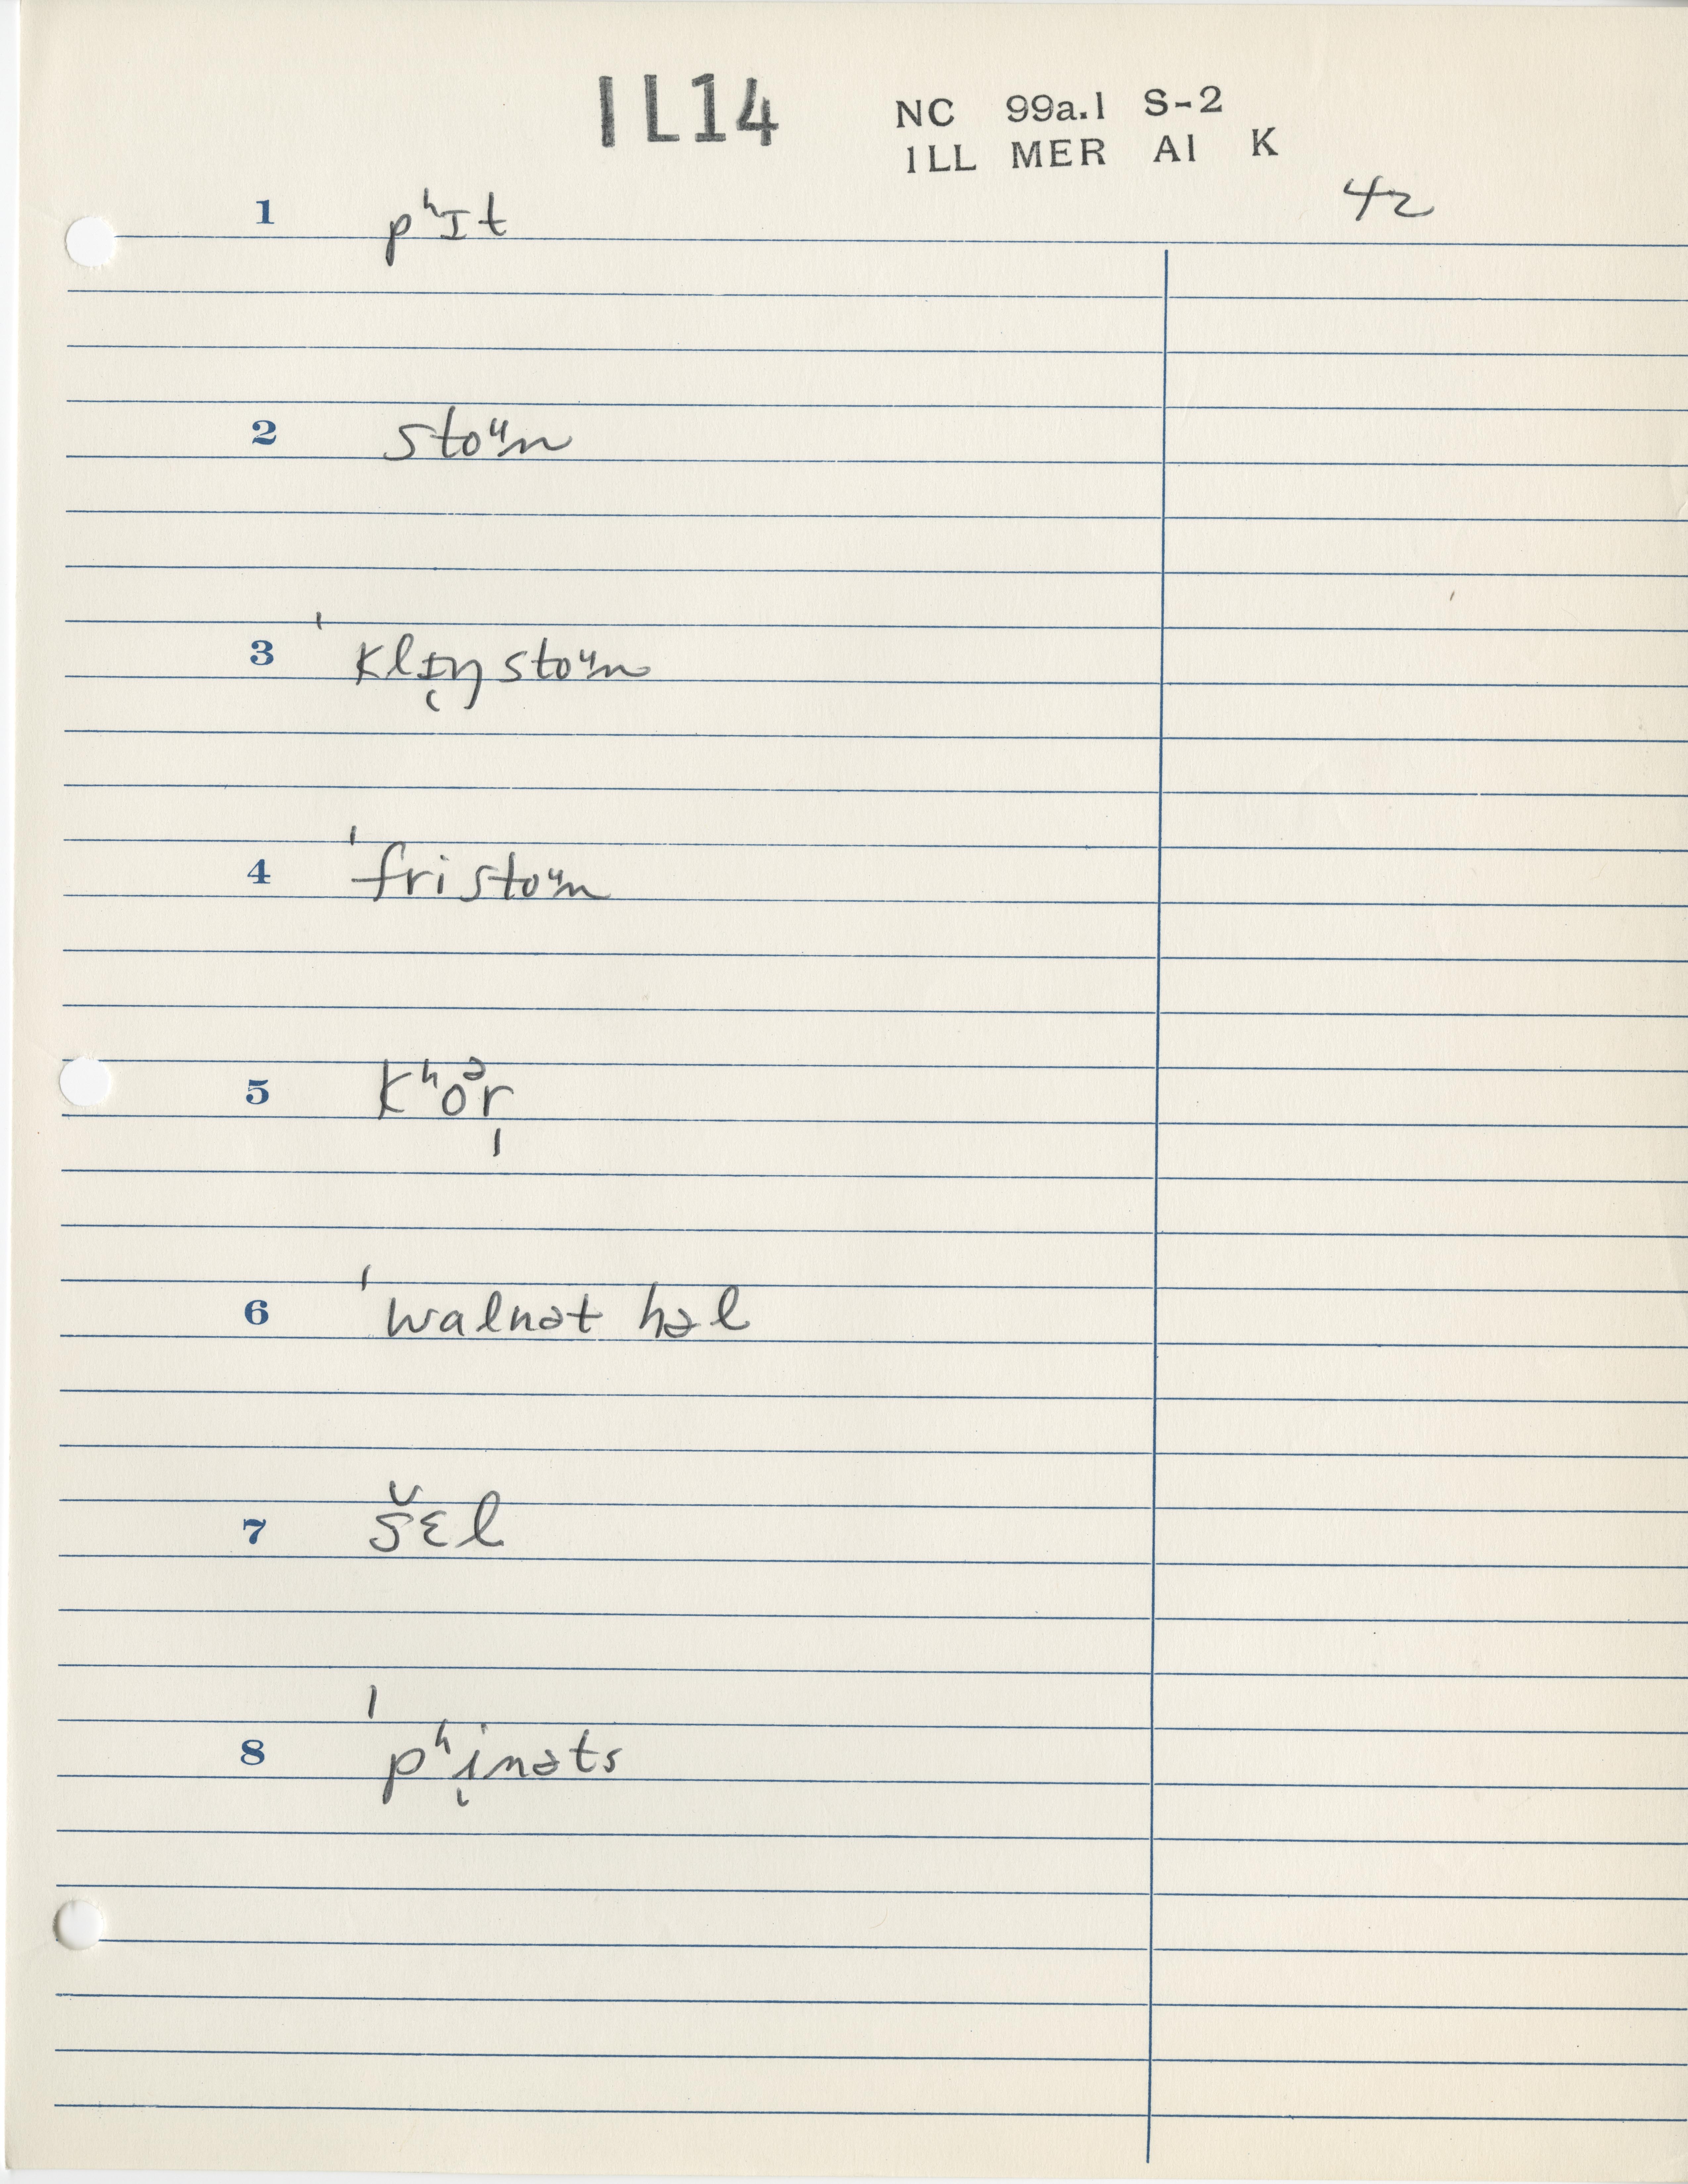 IL14
NC 99a.1 S-2
ILL MER A1 K
42
1 pʰɪt
2 stoᵘn
3 ˈklɪ̨ŋstoᵘn
4 ˈfristoᵘn
5 kʰoᵊr̩
6 ˈwalnət həl
7 šɛl
8 ˈpʰi̜nəts